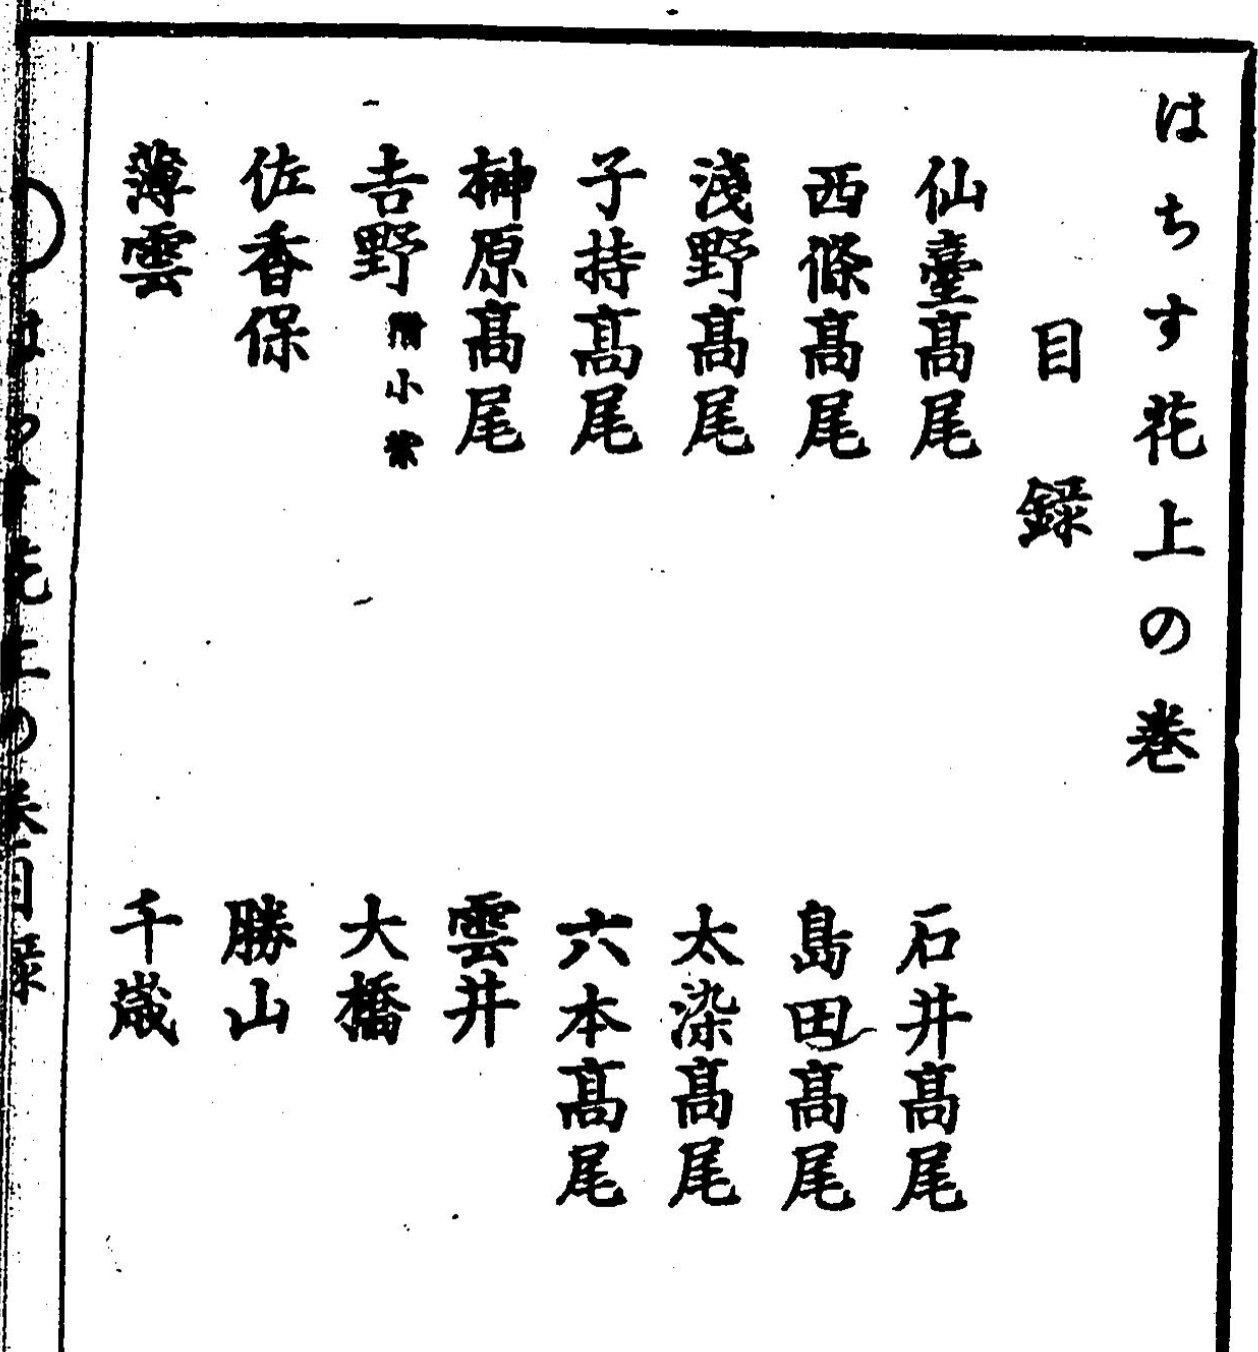 はちす花上の巻
目録
仙臺髙尾
石井髙尾
西條髙尾
島田髙尾
淺野髙尾
太染髙尾
子持髙尾
六本髙尾
榊原髙尾
雲井
吉野 附小紫
大橋
佐香保
勝山
薄雲
千歳
はちす花上の巻目録